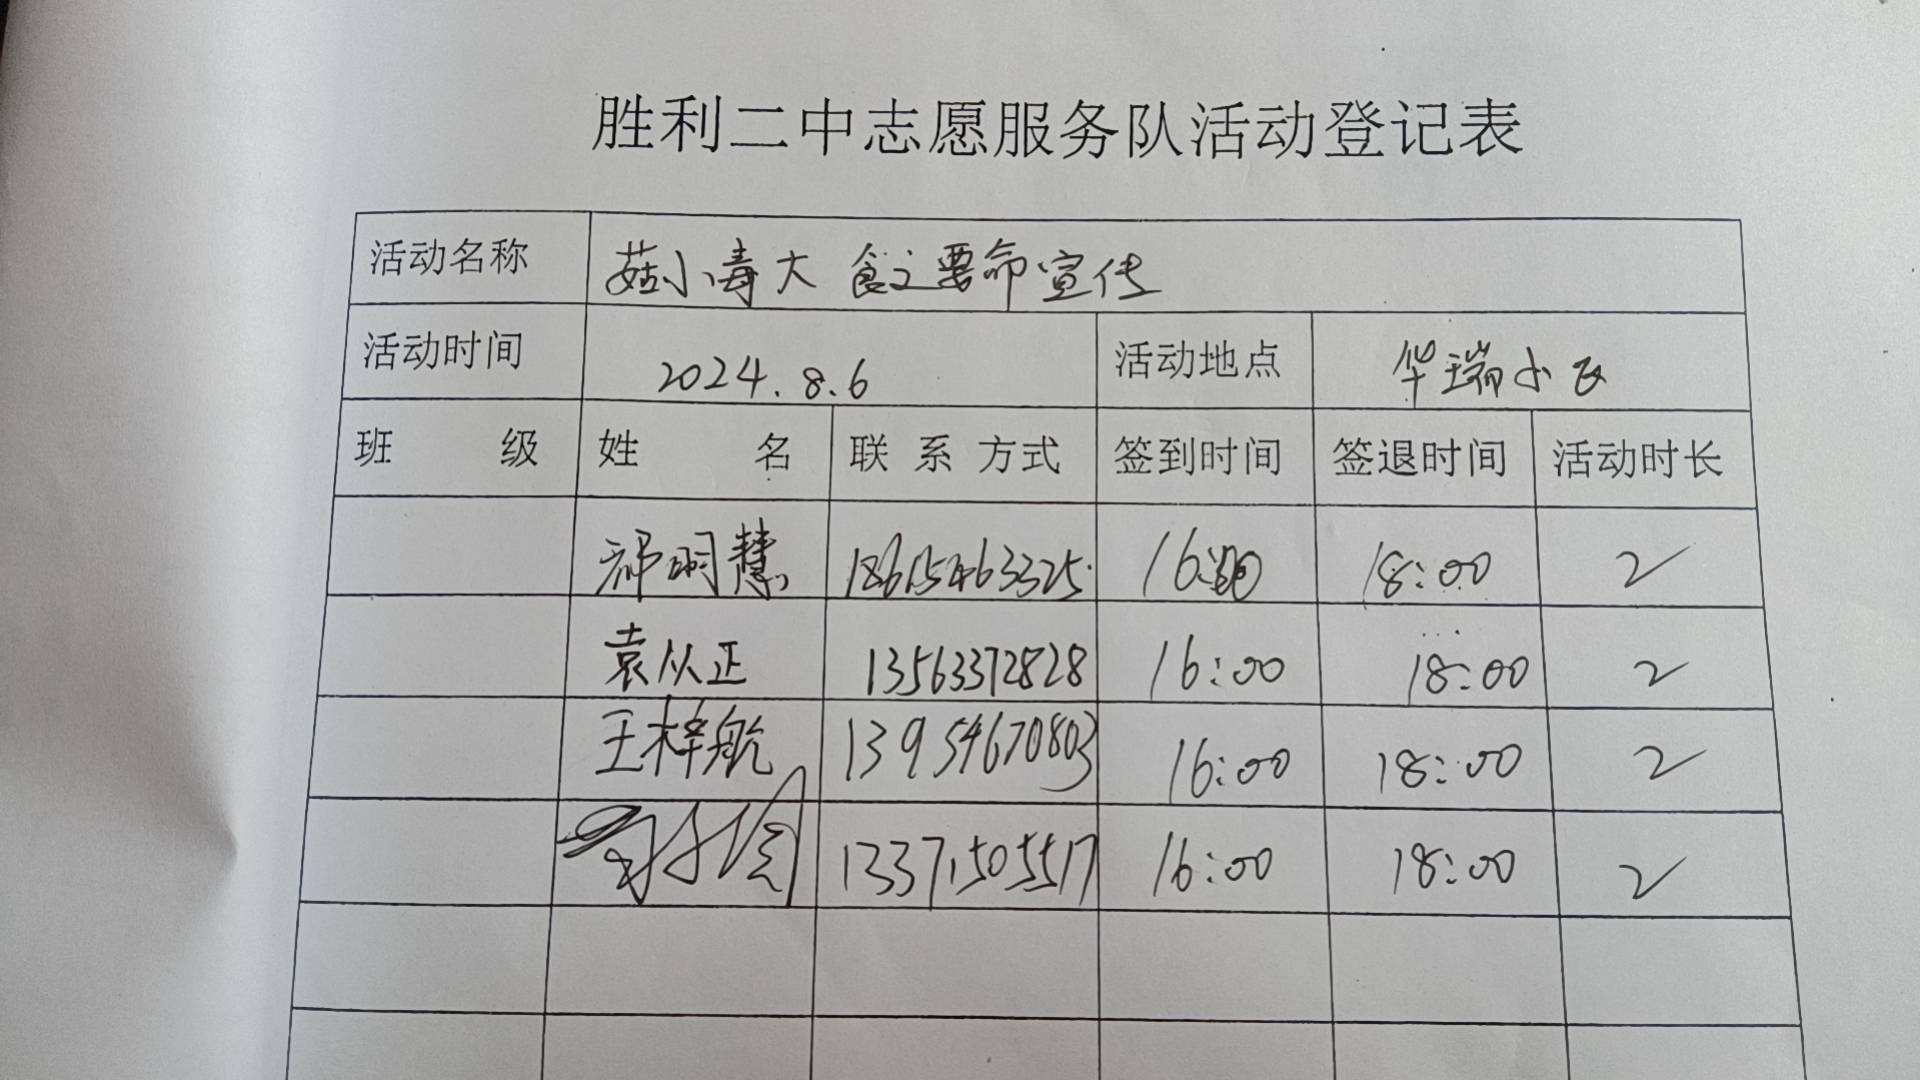 胜利二中志愿服务队活动登记表
活动名称 菇小毒大 食之要命宣传
活动时间 2024.8.6 活动地点 华瑞小区
班 级 姓 名 联 系 方式 签到时间 签退时间 活动时长
祁明慧 18615463325 16:00 18:00 2
袁从正 13563372828 16:00 18:00 2
王梓航 13954670803 16:00 18:00 2
13371505517 16:00 18:00 2